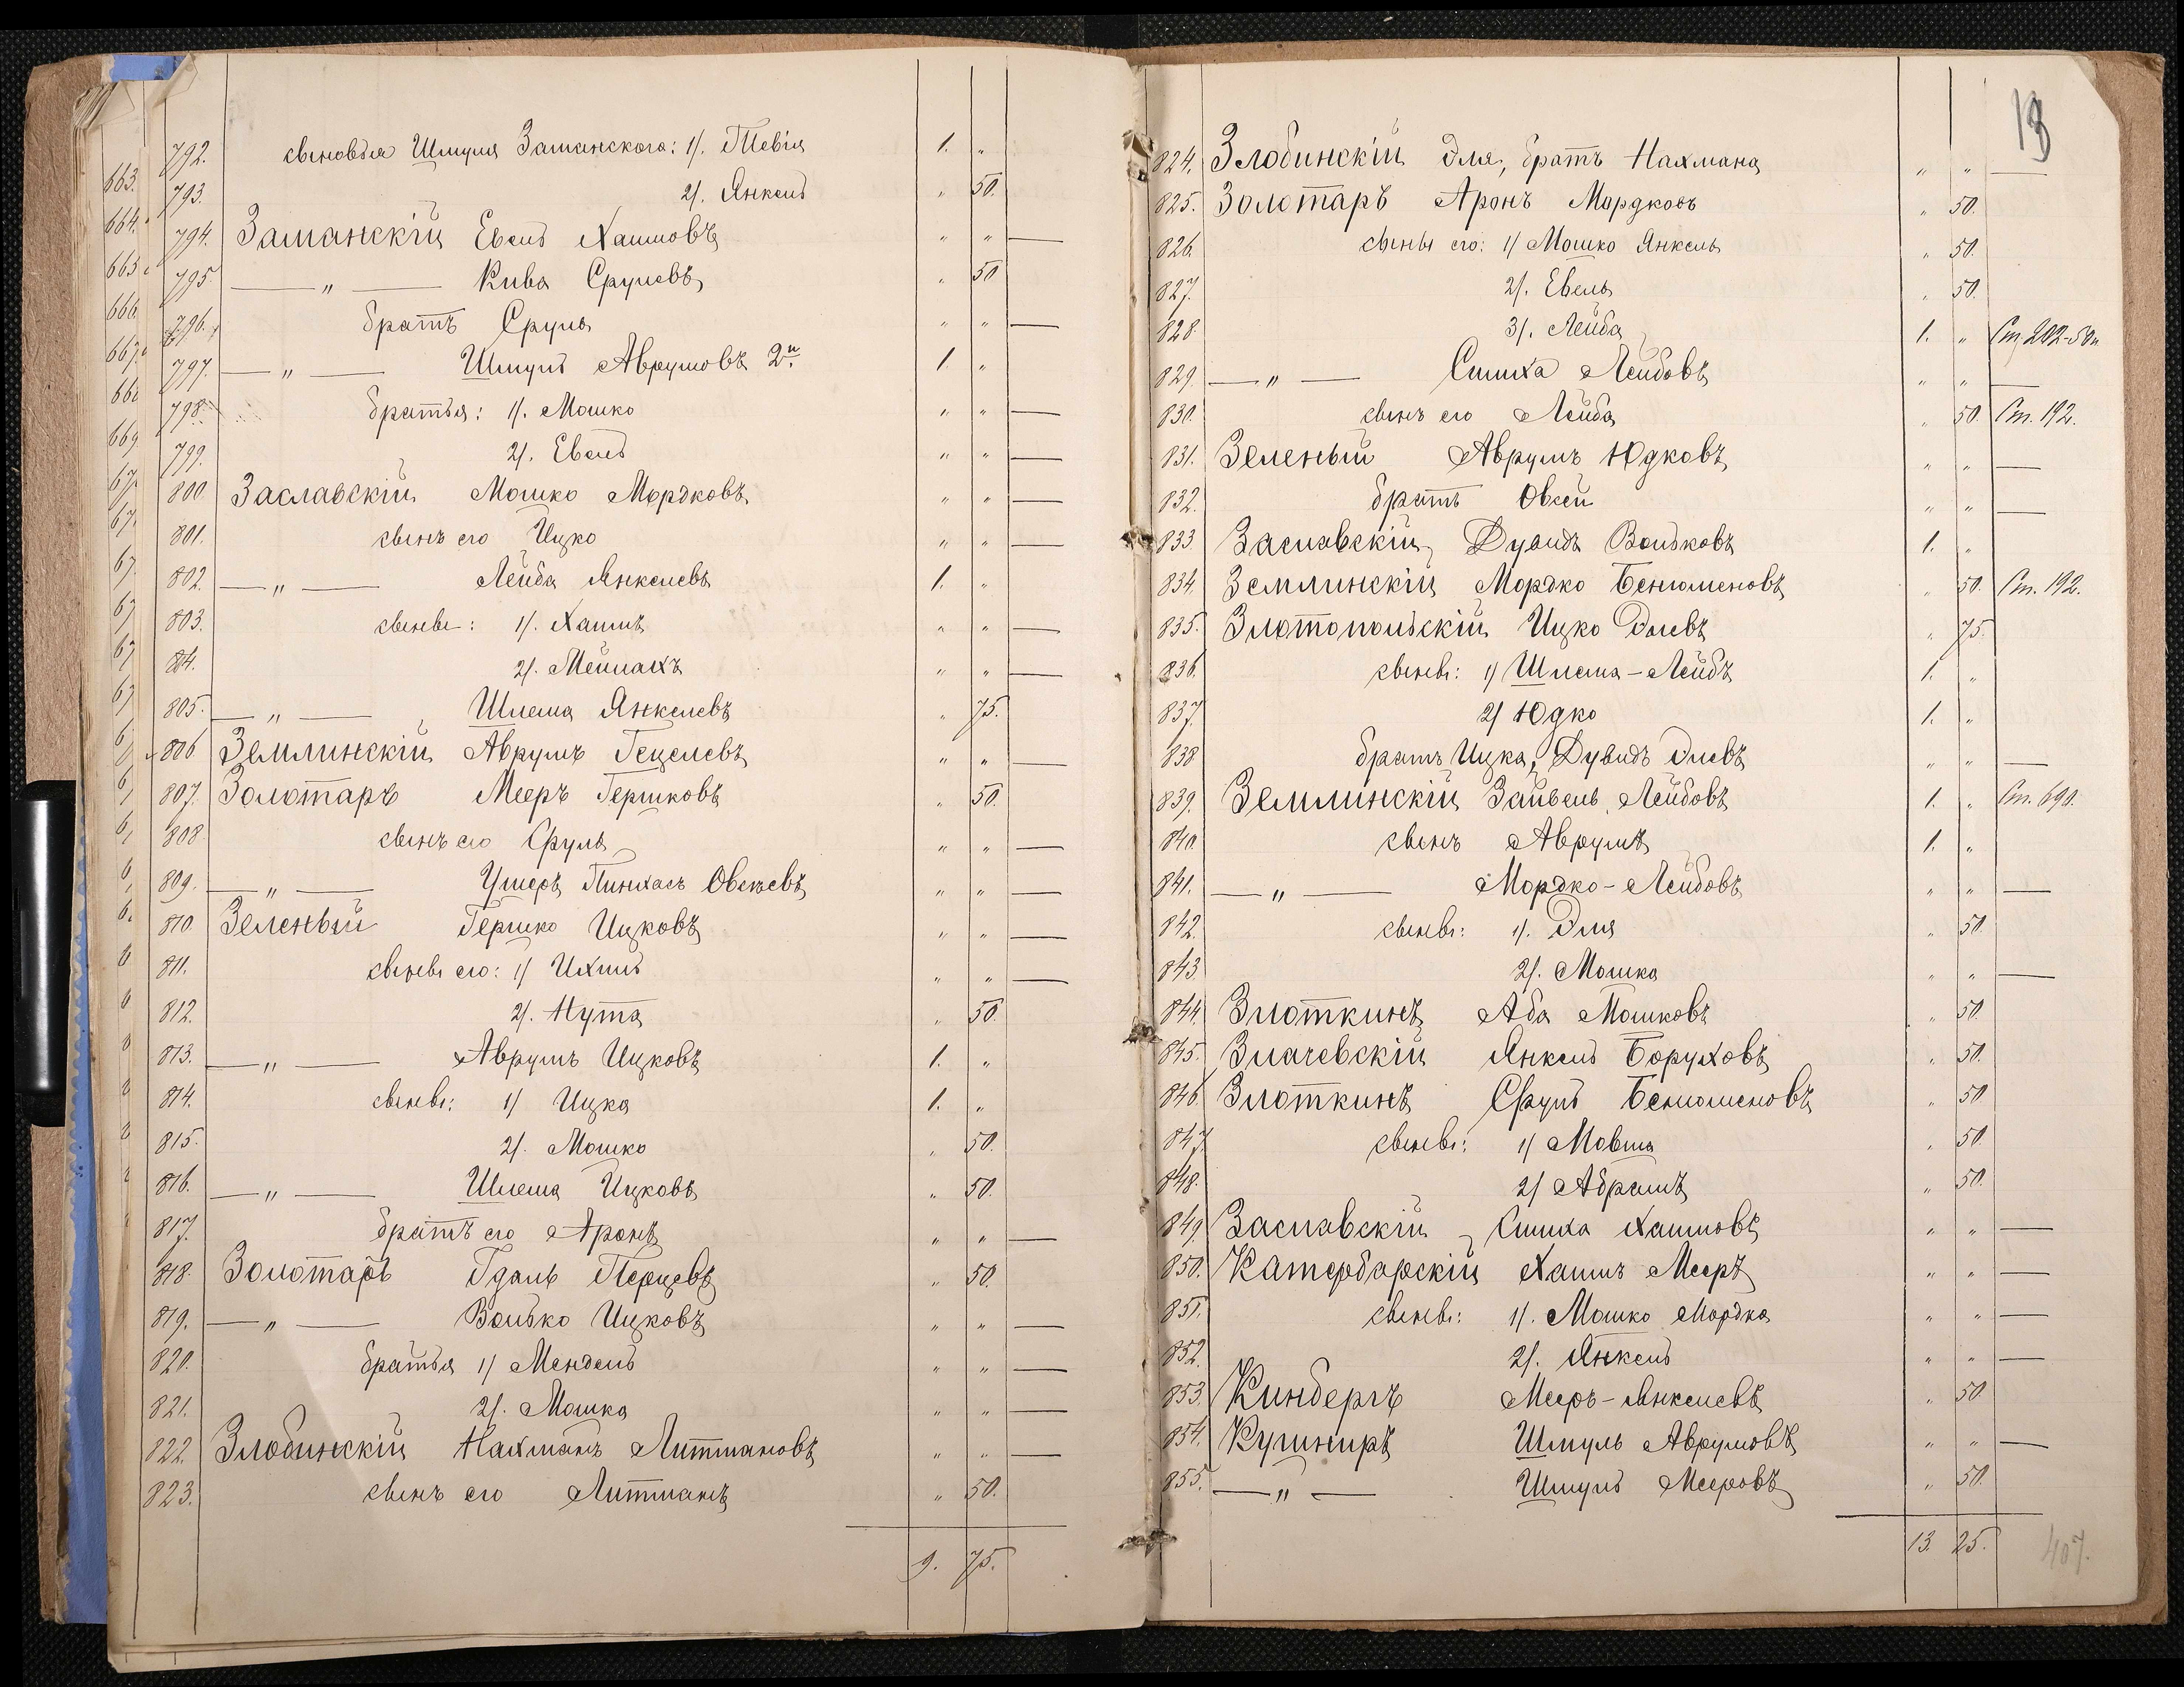 792. сыновья Шмуля Заманскаго: 1/. Тевія 1. "
793. 2/. Янкель " 50.
794. Заманскій Евель Хаимовъ " " —
795 — " — Кива Срулевъ " 50
796. братъ Сруль " " —
797. — " — Шмуль Аврумовъ 2й 1. "
798. братья: 1/. Мошко " " —
799. 2/. Евель " " —
800 Заславскій Мошко Мордковъ " " —
801. сынъ его Ицко " " —
802. — " — Лейба Янкелевъ 1. "
803. сыновья: 1/. Хаимъ " " —
804. 2/. Мейлахъ " " —
805. — " — Шлема Янкелевъ " 75.
806 Землинскій Аврумъ Гецелевъ " " —
807. Золотаръ Мееръ Гершковъ " 50.
808 сынъ его Сруль " " —
809. — " — Ушеръ Пинхасъ Овсеевъ " " —
810. Зеленый Гершко Ицковъ " " —
811. сыновья его: 1/ Ихиль " " —
812. 2/. Нута " 50.
813. — " — Аврумъ Ицковъ 1. "
814. сыновья: 1/ Ицка 1. "
815. 2/. Мошко " 50.
816. — " — Шлема Ицковъ " 50.
817. братъ его Аронъ " " —
818. Золотаръ Гдаль Перцевъ " 50.
819. — " — Волько Ицковъ " " —
820. братья 1/ Мендель " " —
821. 2/. Мошка " " —
822. Злобинскій Нахманъ Литмановъ " " —
823. сынъ его Литманъ " 50.
9. 75.
13
824. Злобинскій Эля, братъ Нахмана " " —
825. Золотаръ Аронъ Мордковъ " 50.
826. сыны его: 1/ Мошко Янкель " 50.
827. 2/. Евель " 50.
828 3/. Лейба 1. " Ст. 202-50к
829. — " — Симха Лейбовъ " " —
830. сынъ его Лейба " 50. Ст. 192.
831. Зеленый Аврумъ Юдковъ " " —
832. братъ Овсей " " —
833. Заславскій Дувидъ Вольковъ 1. "
834. Землинскій Мордко Беньюменовъ " 50. Ст. 192.
835. Златопольскій Ицко Элевъ " 75.
836. сыновья: 1/ Шлема-Лейбъ 1. "
837. 2/ Юдко 1. "
838 братъ Ицка, Дувидъ Элевъ " " —
839. Землинскій Зайвель Лейбовъ 1. " Ст. 690.
840. сынъ Аврумъ 1. "
841. — " — Мордко-Лейбовъ " " —
842. сыновья: 1/. Эля " 50.
843 2/. Мошка " " —
844 Злоткинъ Аба Мошковъ " 50.
845. Злачевскій Янкель Боруховъ " 50.
846. Злоткинъ Сруль Беньюменовъ " 50
847 сыновья: 1/ Мовша " 50.
848. 2/ Абрамъ " 50.
849. Заславскій Симха Хаимовъ " " —
850. Катербарскій Хаимъ Мееръ " " —
851. сыновья: 1/. Мошко Мордка " " —
852. 2/. Янкель " " —
853. Кинбергъ Мееръ-Янкелевъ " 50
854. Кушниръ Шмуль Аврумовъ " " —
855. — " — Шмуль Мееровъ " 50.
13. 25.
407.